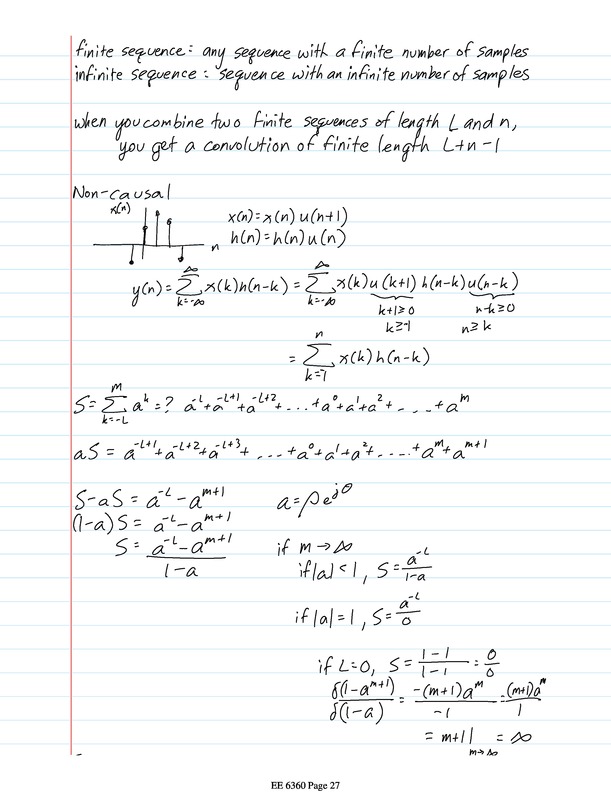 finite sequence: any sequence with a finite number of samples
infinite sequence: sequence with an infinite number of samples
when you combine two finite sequences of length L and n,
you get a convolution of finite length L+n-1
Non-causal
x(n)
n
x(n)=x(n)u(n+1)
h(n)=h(n)u(n)
y(n)=∞∑k=-∞ x(k)h(n-k) = ∞∑k=-∞ x(k)u(k+1)h(n-k)u(n-k)
k+1≥0 n-k≥0
k≥-1 n≥k
= n∑k=-1 x(k)h(n-k)
S= m∑k=-L a^k =? a^-L+a^-L+1+a^-L+2+...+a^0+a^1+a^2+...+a^m
aS = a^-L+1+a^-L+2+a^-L+3+...+a^0+a^1+a^2+...+a^m+a^m+1
S-aS = a^-L-a^m+1 a=ρe^jθ
(1-a)S = a^-L-a^m+1
S = (a^-L-a^m+1)/(1-a) if m→∞
if |a|<1, S=a^-L/(1-a)
if |a|=1, S=a^-L/0
if L=0, S=(1-1)/(1-1)=0/0
δ(1-a^m+1)/δ(1-a) = -(m+1)a^m/-1 = (m+1)a^m/1
= m+1|m→∞ = ∞
EE 6360 Page 27